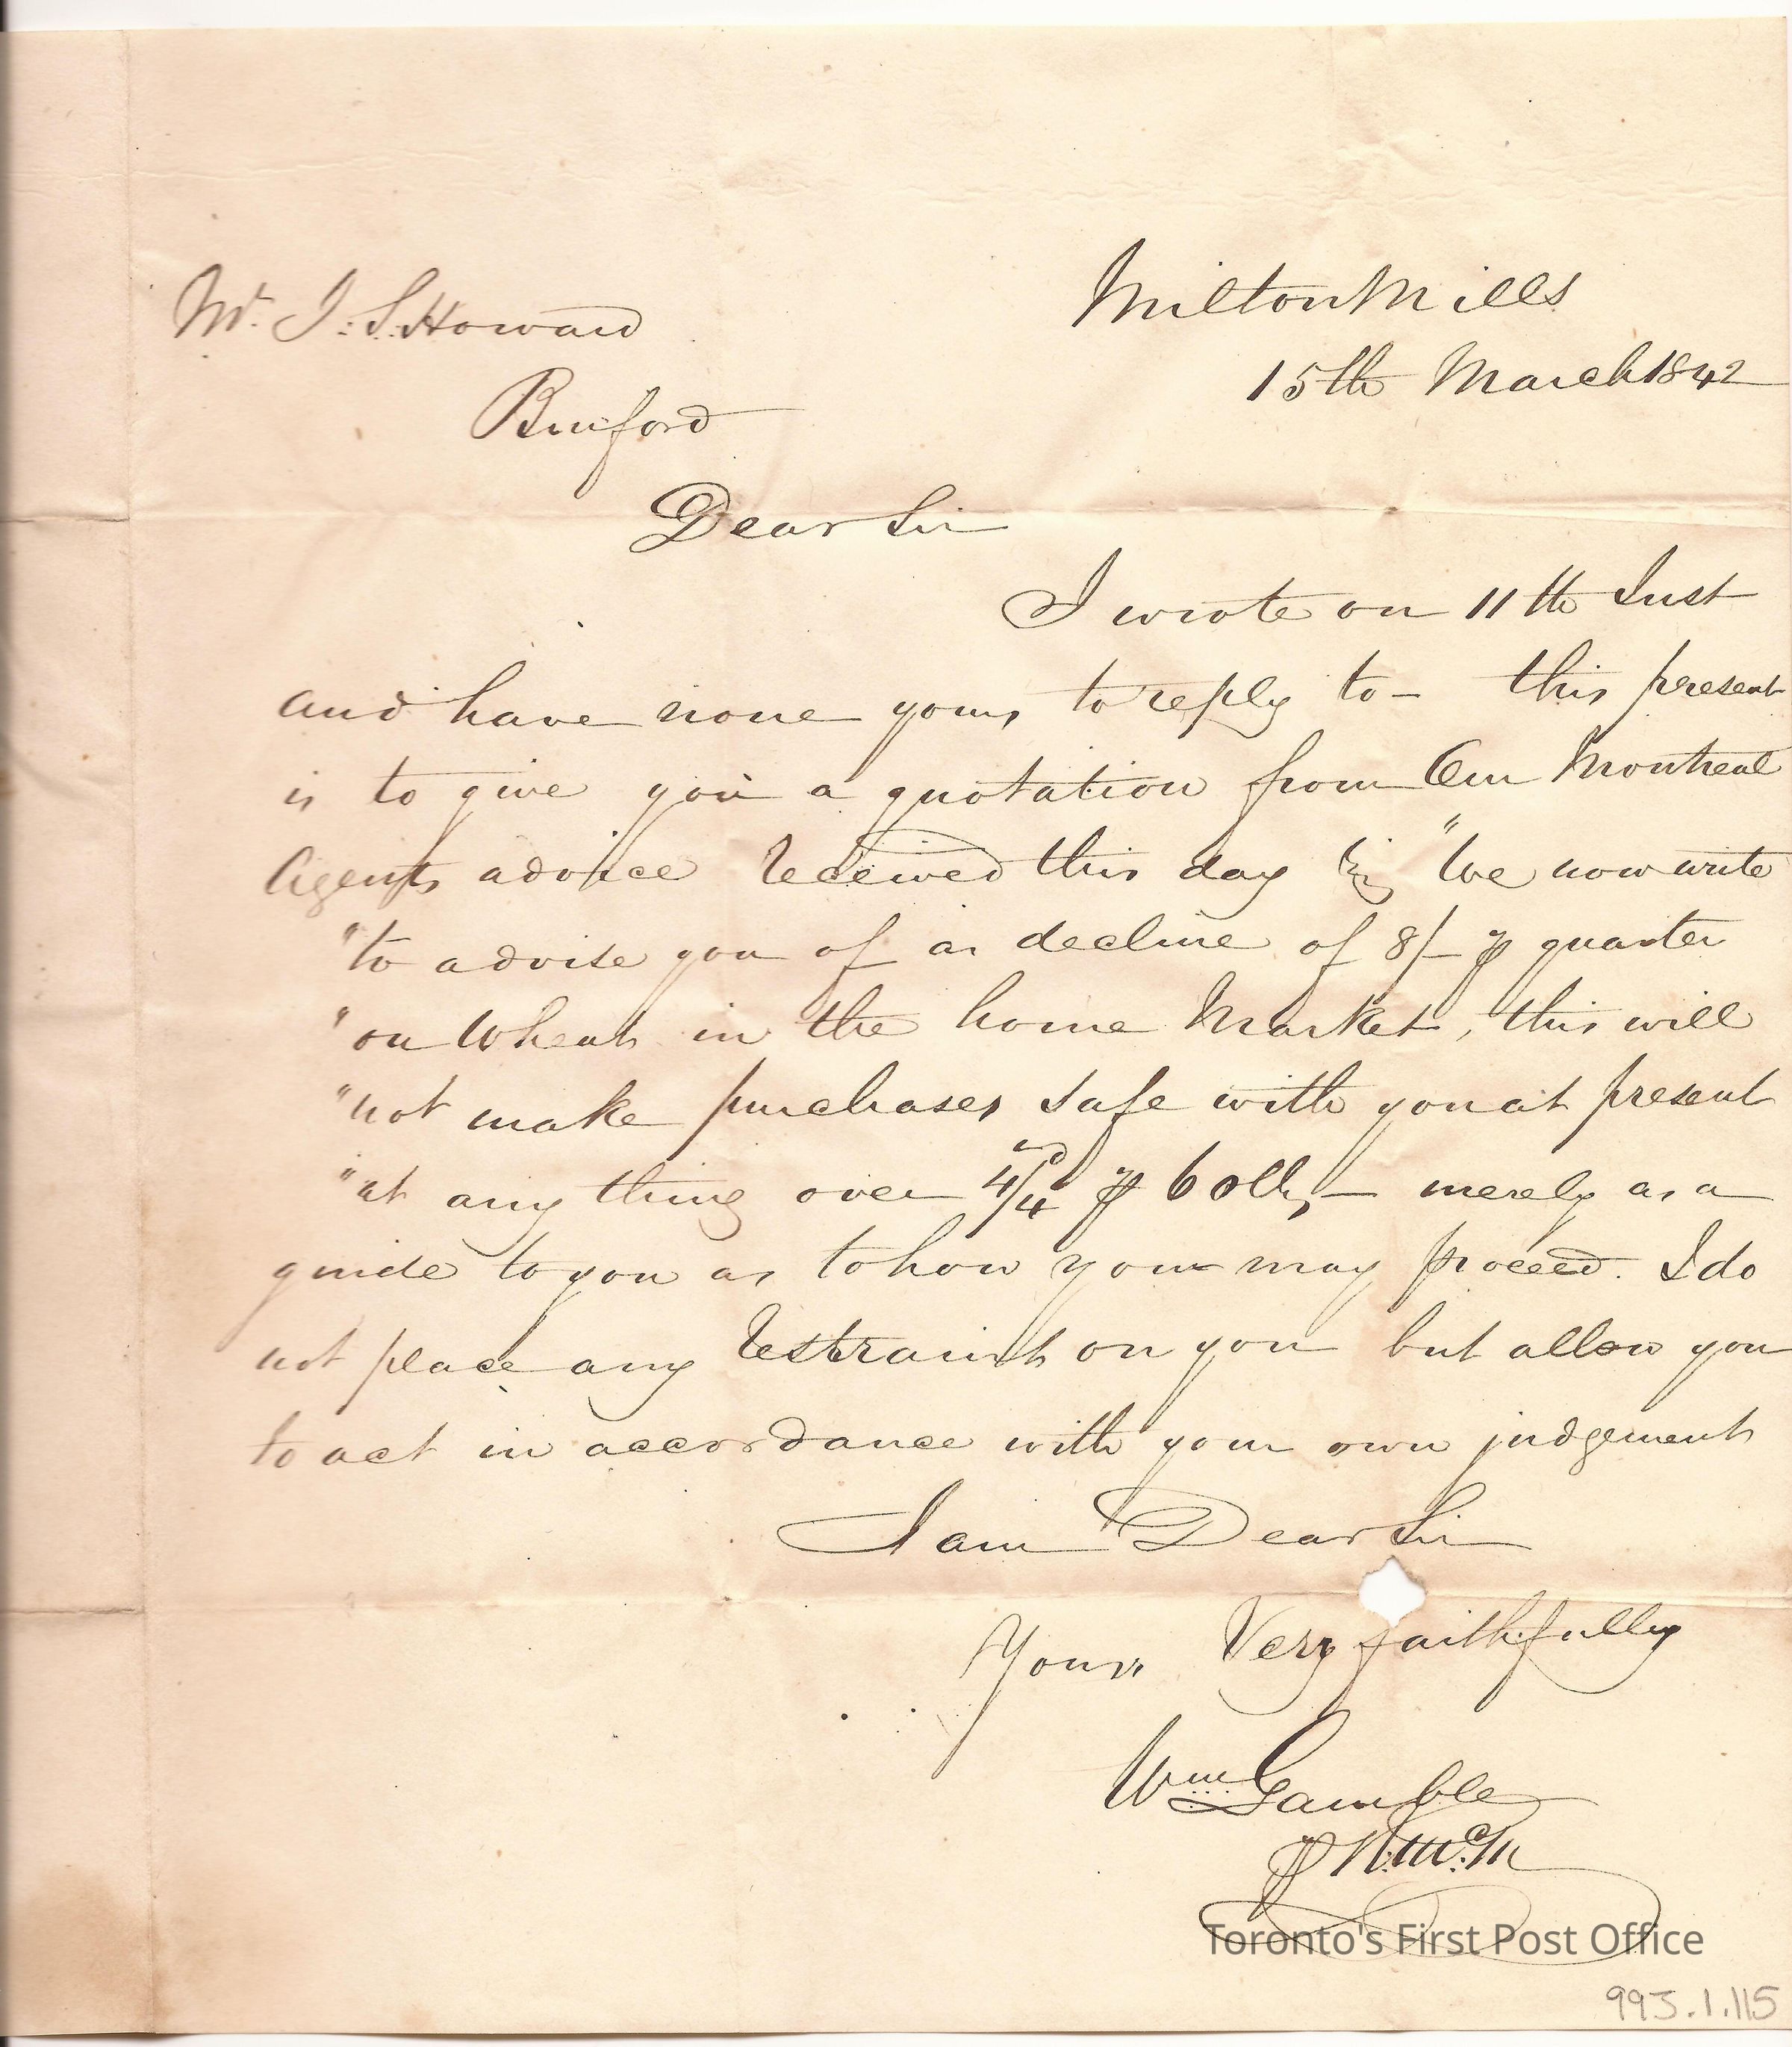 Milton Mills
15th March 1842
Mr. J. S. Howard
Burford
Dear Sir
I wrote on 11th Inst
and have none yours to reply to – this present
is to give you a quotation from Our Montreal
Agents advice received this day "We now write
"to advise you of a decline of 8/- ⅌ quarter
"on Wheat in the home Market, this will
"not make purchases safe with you at present
"at any thing over 4/4d ⅌ 60 lbs, – merely as a
guide to you as to how you may proceed. I do
not place any restraint on you but allow you
to act in accordance with your own judgement
I am Dear Sir
Yours Very faithfully
Wm Gamble
⅌
Toronto's First Post Office
993.1.115